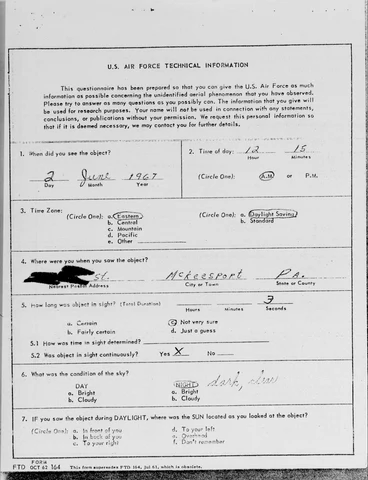 U.S. AIR FORCE TECHNICAL INFORMATION
This questionnaire has been prepared so that you can give the U.S. Air Force as much
information as possible concerning the unidentified aerial phenomenon that you have observed.
Please try to answer as many questions as you possibly can. The information that you give will
be used for research purposes. Your name will not be used in connection with any statements,
conclusions, or publications without your permission. We request this personal information so
that if it is deemed necessary, we may contact you for further details.
1. When did you see the object?
2 June 1967
Day Month Year
2. Time of day: 12 15
Hour Minutes
(Circle One): A.M. or P.M.
3. Time Zone:
(Circle One): a. Eastern
b. Central
c. Mountain
d. Pacific
e. Other
(Circle One): a. Daylight Saving
b. Standard
4. Where were you when you saw the object?
St. McKeesport Pa.
Nearest Postal Address City or Town State or County
5. How long was object in sight? (Total Duration) 3
Hours Minutes Seconds
a. Certain c. Not very sure
b. Fairly certain d. Just a guess
5.1 How was time in sight determined?
5.2 Was object in sight continuously? Yes X No
6. What was the condition of the sky?
DAY NIGHT dark, clear
a. Bright a. Bright
b. Cloudy b. Cloudy
7. IF you saw the object during DAYLIGHT, where was the SUN located as you looked at the object?
(Circle One): a. In front of you d. To your left
b. In back of you e. Overhead
c. To your right f. Don't remember
FORM
FTD OCT 62 164 This form supersedes FTD 164, Jul 61, which is obsolete.